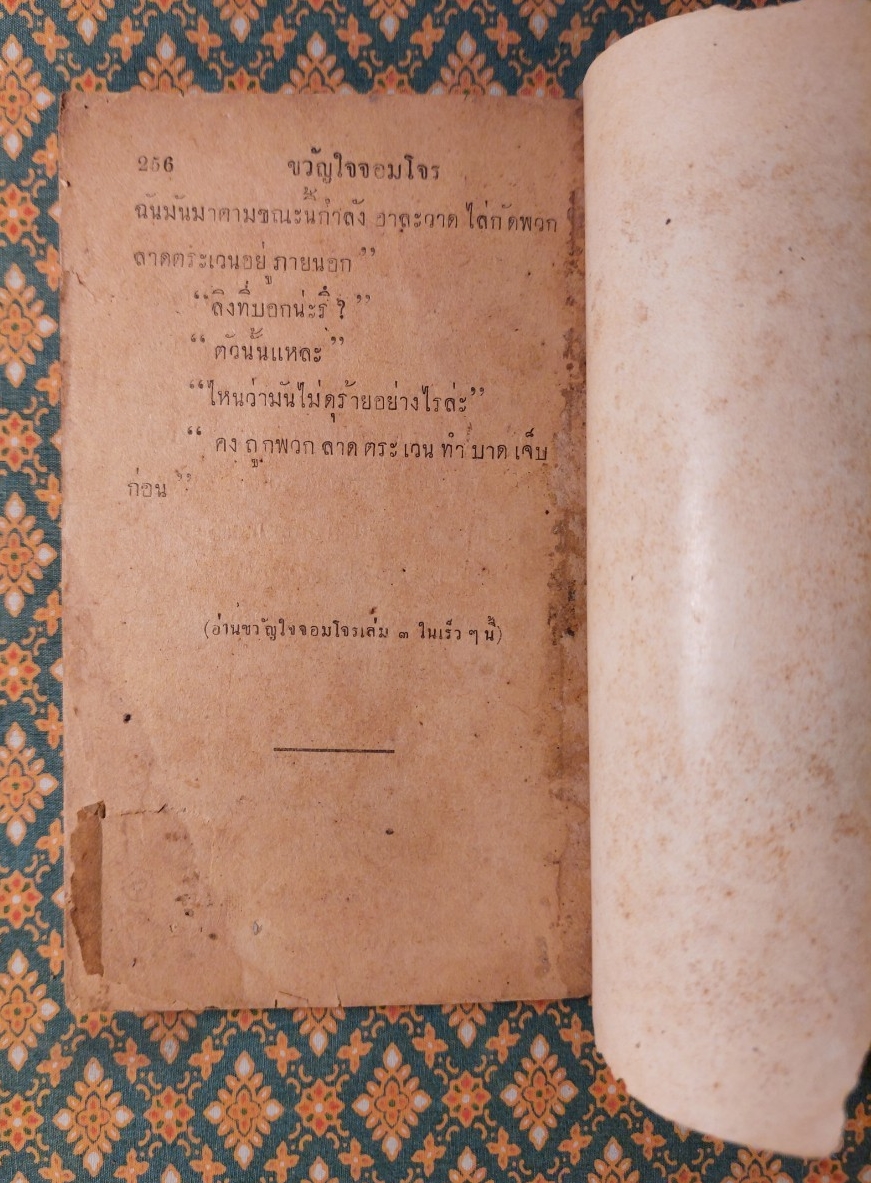 256 ขวัญใจจอมโจร
ฉันมันมาตามขณะนี้กำลัง อาละวาด ไล่กัดพวก
ลาดตระเวนอยู่ ภายนอก ”
“ลิงที่บอกน่ะรึ ? ”
“ ตัวนั้นแหละ ”
“ไหนว่ามันไม่ดุร้ายอย่างไรล่ะ”
“ คง ถูกพวก ลาด ตระ เวน ทำ บาด เจ็บ
ก่อน ”
(อ่านขวัญใจจอมโจรเล่ม ๓ ในเร็ว ๆ นี้)